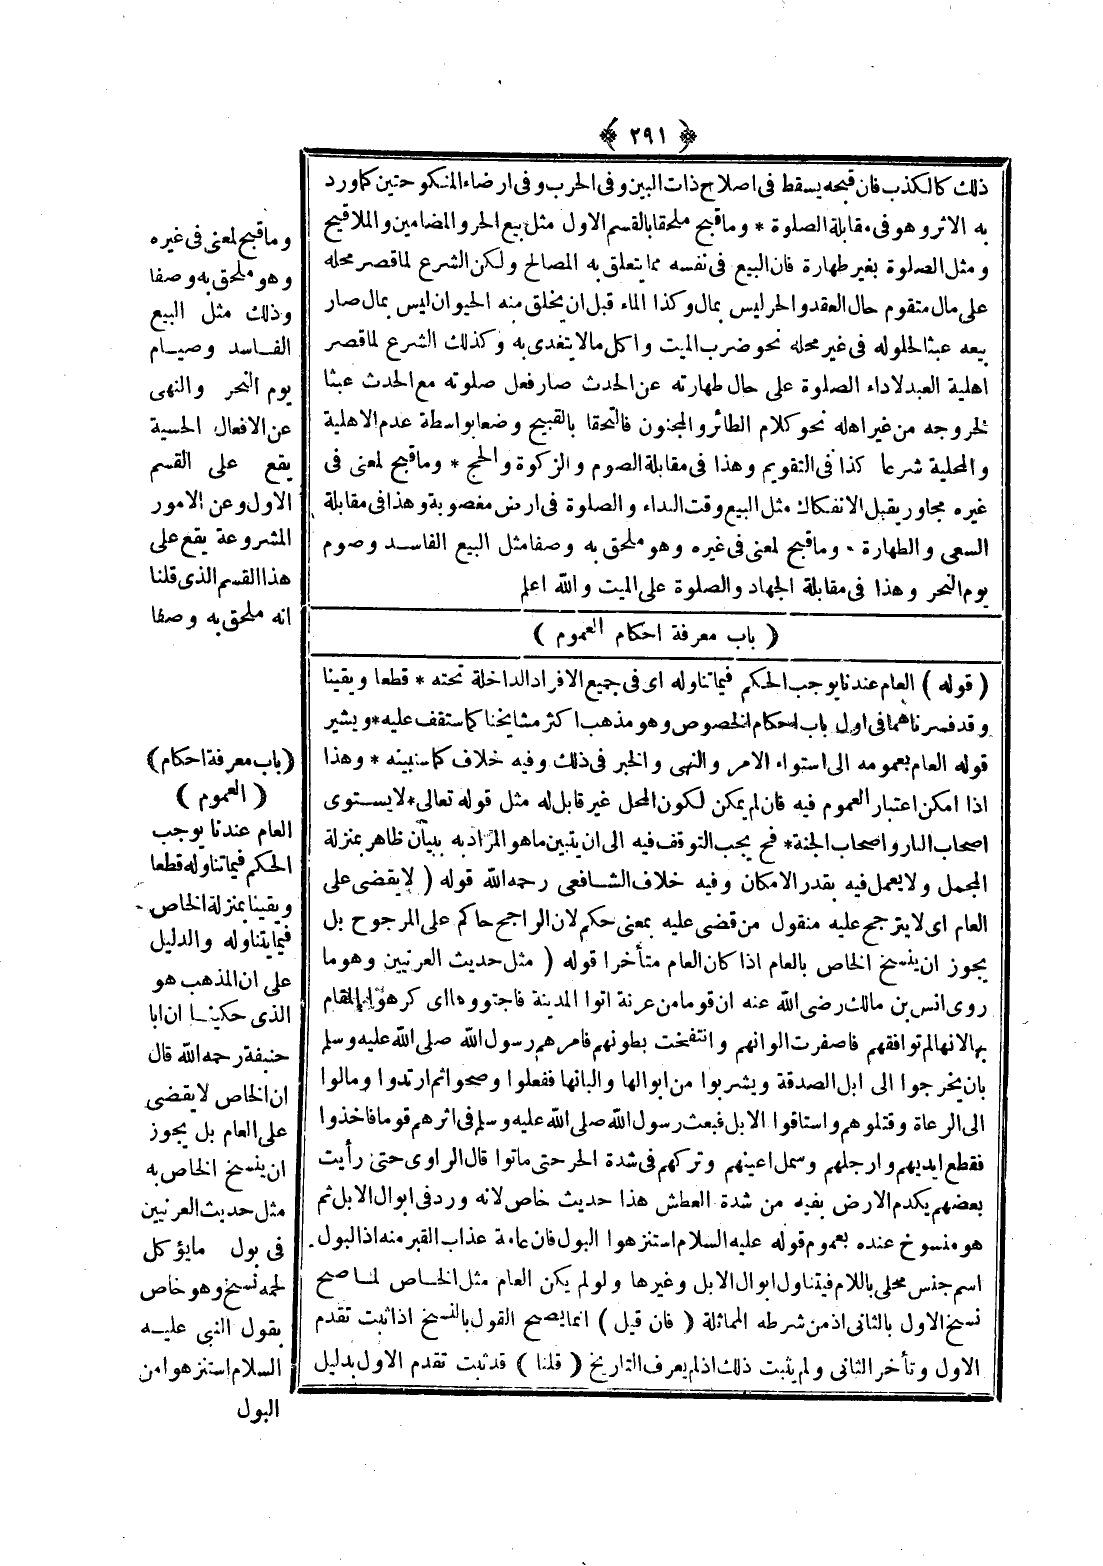 ﴿ ٢٩١ ﴾
ذلك كالكذب فان قبحه يسقط فى اصلاح ذات البين وفى الحرب وفى ارضاء المنكوحتين كما ورد
به الاثر وهو فى مقابلة الصلوة * وما قبح ملحقا بالقسم الاول مثل بيع الحر والمضامين والملاقيح
ومثل الصلوة بغير طهارة فان البيع فى نفسه مما يتعلق به المصالح ولكن الشرع لما قصر محله
على مال متقوم حال العقد والحر ليس بمال وكذا الماء قبل ان يخلق منه الحيوان ليس بمال صار
بيعه عبثا لحلوله فى غير محله نحو ضرب الميت واكل مالا يتغدى به وكذلك الشرع لما قصر
اهلية العبد لاداء الصلوة على حال طهارته عن الحدث صار فعل صلوته مع الحدث عبثا
لخروجه من غير اهله نحو كلام الطائر والمجنون فالتحقا بالقبيح وضعا بواسطة عدم الاهلية
والمحلية شرعا كذا فى التقويم وهذا فى مقابلة الصوم والزكوة والحج * وما قبح لمعنى فى
غيره مجاور يقبل الانفكاك مثل البيع وقت النداء والصلوة فى ارض مغصوبة وهذا فى مقابلة
السعى والطهارة * وما قبح لمعنى فى غيره وهو ملحق به وصفا مثل البيع الفاسد وصوم
يوم النحر وهذا فى مقابلة الجهاد والصلوة على الميت والله اعلم
( باب معرفة احكام العموم )
( قوله ) العام عندنا يوجب الحكم فيما تناوله اى فى جميع الافراد الداخلة تحته * قطعا ويقينا
وقد فسرناهما فى اول باب احكام الخصوص وهو مذهب اكثر مشايخنا كما ستقف عليه * ويشير
قوله العام بعمومه الى استواء الامر والنهى والخبر فى ذلك وفيه خلاف كما سنبينه * وهذا
اذا امكن اعتبار العموم فيه فان لم يمكن لكون المحل غير قابل له مثل قوله تعالى * لا يستوى
اصحاب النار واصحاب الجنة * فح يجب التوقف فيه الى ان يتبين ما هو المراد به ببيان ظاهر بمنزلة
المجمل ولا يعمل فيه بقدر الامكان وفيه خلاف الشافعى رحمه الله قوله ( لا يقضى على
العام اى لا يترجح عليه منقول من قضى عليه بمعنى حكم لان الراجح حاكم على المرجوح بل
يجوز ان ينسخ الخاص بالعام اذا كان العام متأخرا قوله ( مثل حديث العرنيين وهو ما
روى انس بن مالك رضى الله عنه ان قوما من عرنة اتوا المدينة فاجتووها اى كرهوا المقام
بها لانها لم توافقهم فاصفرت الوانهم وانتفخت بطونهم فامرهم رسول الله صلى الله عليه وسلم
بان يخرجوا الى ابل الصدقة ويشربوا من ابوالها والبانها ففعلوا وصحوا ثم ارتدوا ومالوا
الى الرعاة وقتلوهم واستاقوا الابل فبعث رسول الله صلى الله عليه وسلم فى اثرهم قوما فاخذوا
فقطع ايديهم وارجلهم وسمل اعينهم وتركهم فى شدة الحر حتى ماتوا قال الراوى حتى رأيت
بعضهم يكدم الارض بفيه من شدة العطش هذا حديث خاص لانه ورد فى ابوال الابل ثم
هو منسوخ عنده بعموم قوله عليه السلام استنزهوا البول فان عامة عذاب القبر منه اذ البول
اسم جنس محلى باللام فيتناول ابوال الابل وغيرها ولو لم يكن العام مثل الخاص لما صح
نسخ الاول بالثانى اذ من شرطه المماثلة ( فان قيل ) انما يصح القول بالنسخ اذا ثبت تقدم
الاول وتأخر الثانى ولم يثبت ذلك اذ لم يعرف التاريخ ( قلنا ) قد ثبت تقدم الاول بدليل
وما قبح لمعنى فى غيره
وهو ملحق به وصفا
وذلك مثل البيع
الفاسد وصيام
يوم النحر والنهى
عن الافعال الحسية
يقع على القسم
الاول وعن الامور
المشروعة يقع على
هذا القسم الذى قلنا
انه ملحق به وصفا
( باب معرفة احكام )
( العموم )
العام عندنا يوجب
الحكم فيما تناوله قطعا
ويقينا بمنزلة الخاص
فيما يتناوله والدليل
على ان المذهب هو
الذى حكينا ان ابا
حنيفة رحمه الله قال
ان الخاص لا يقضى
على العام بل يجوز
ان ينسخ الخاص به
مثل حديث العرنيين
فى بول ما يؤكل
لحمه نسخ وهو خاص
بقول النبى عليه
السلام استنزهوا من
البول